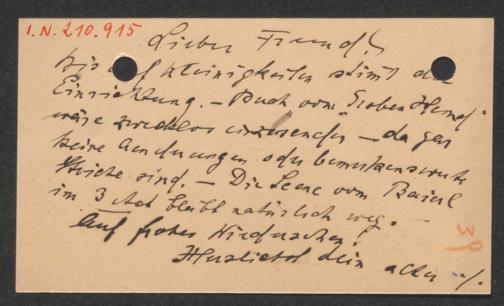 I.N. 210.915
Lieber Freund!
bis auf Kleinigkeiten stimmt die
Einrichtung. – Buch vom
wäre zwecklos einzusenden – da gar
keine Änderungen oder bemerkenswerte
Striche sind. – Die Scene vom
im 3 Akt bleibt natürlich weg. –
Auf frohes Wiedersehen!
Herzlichst dein alter
39